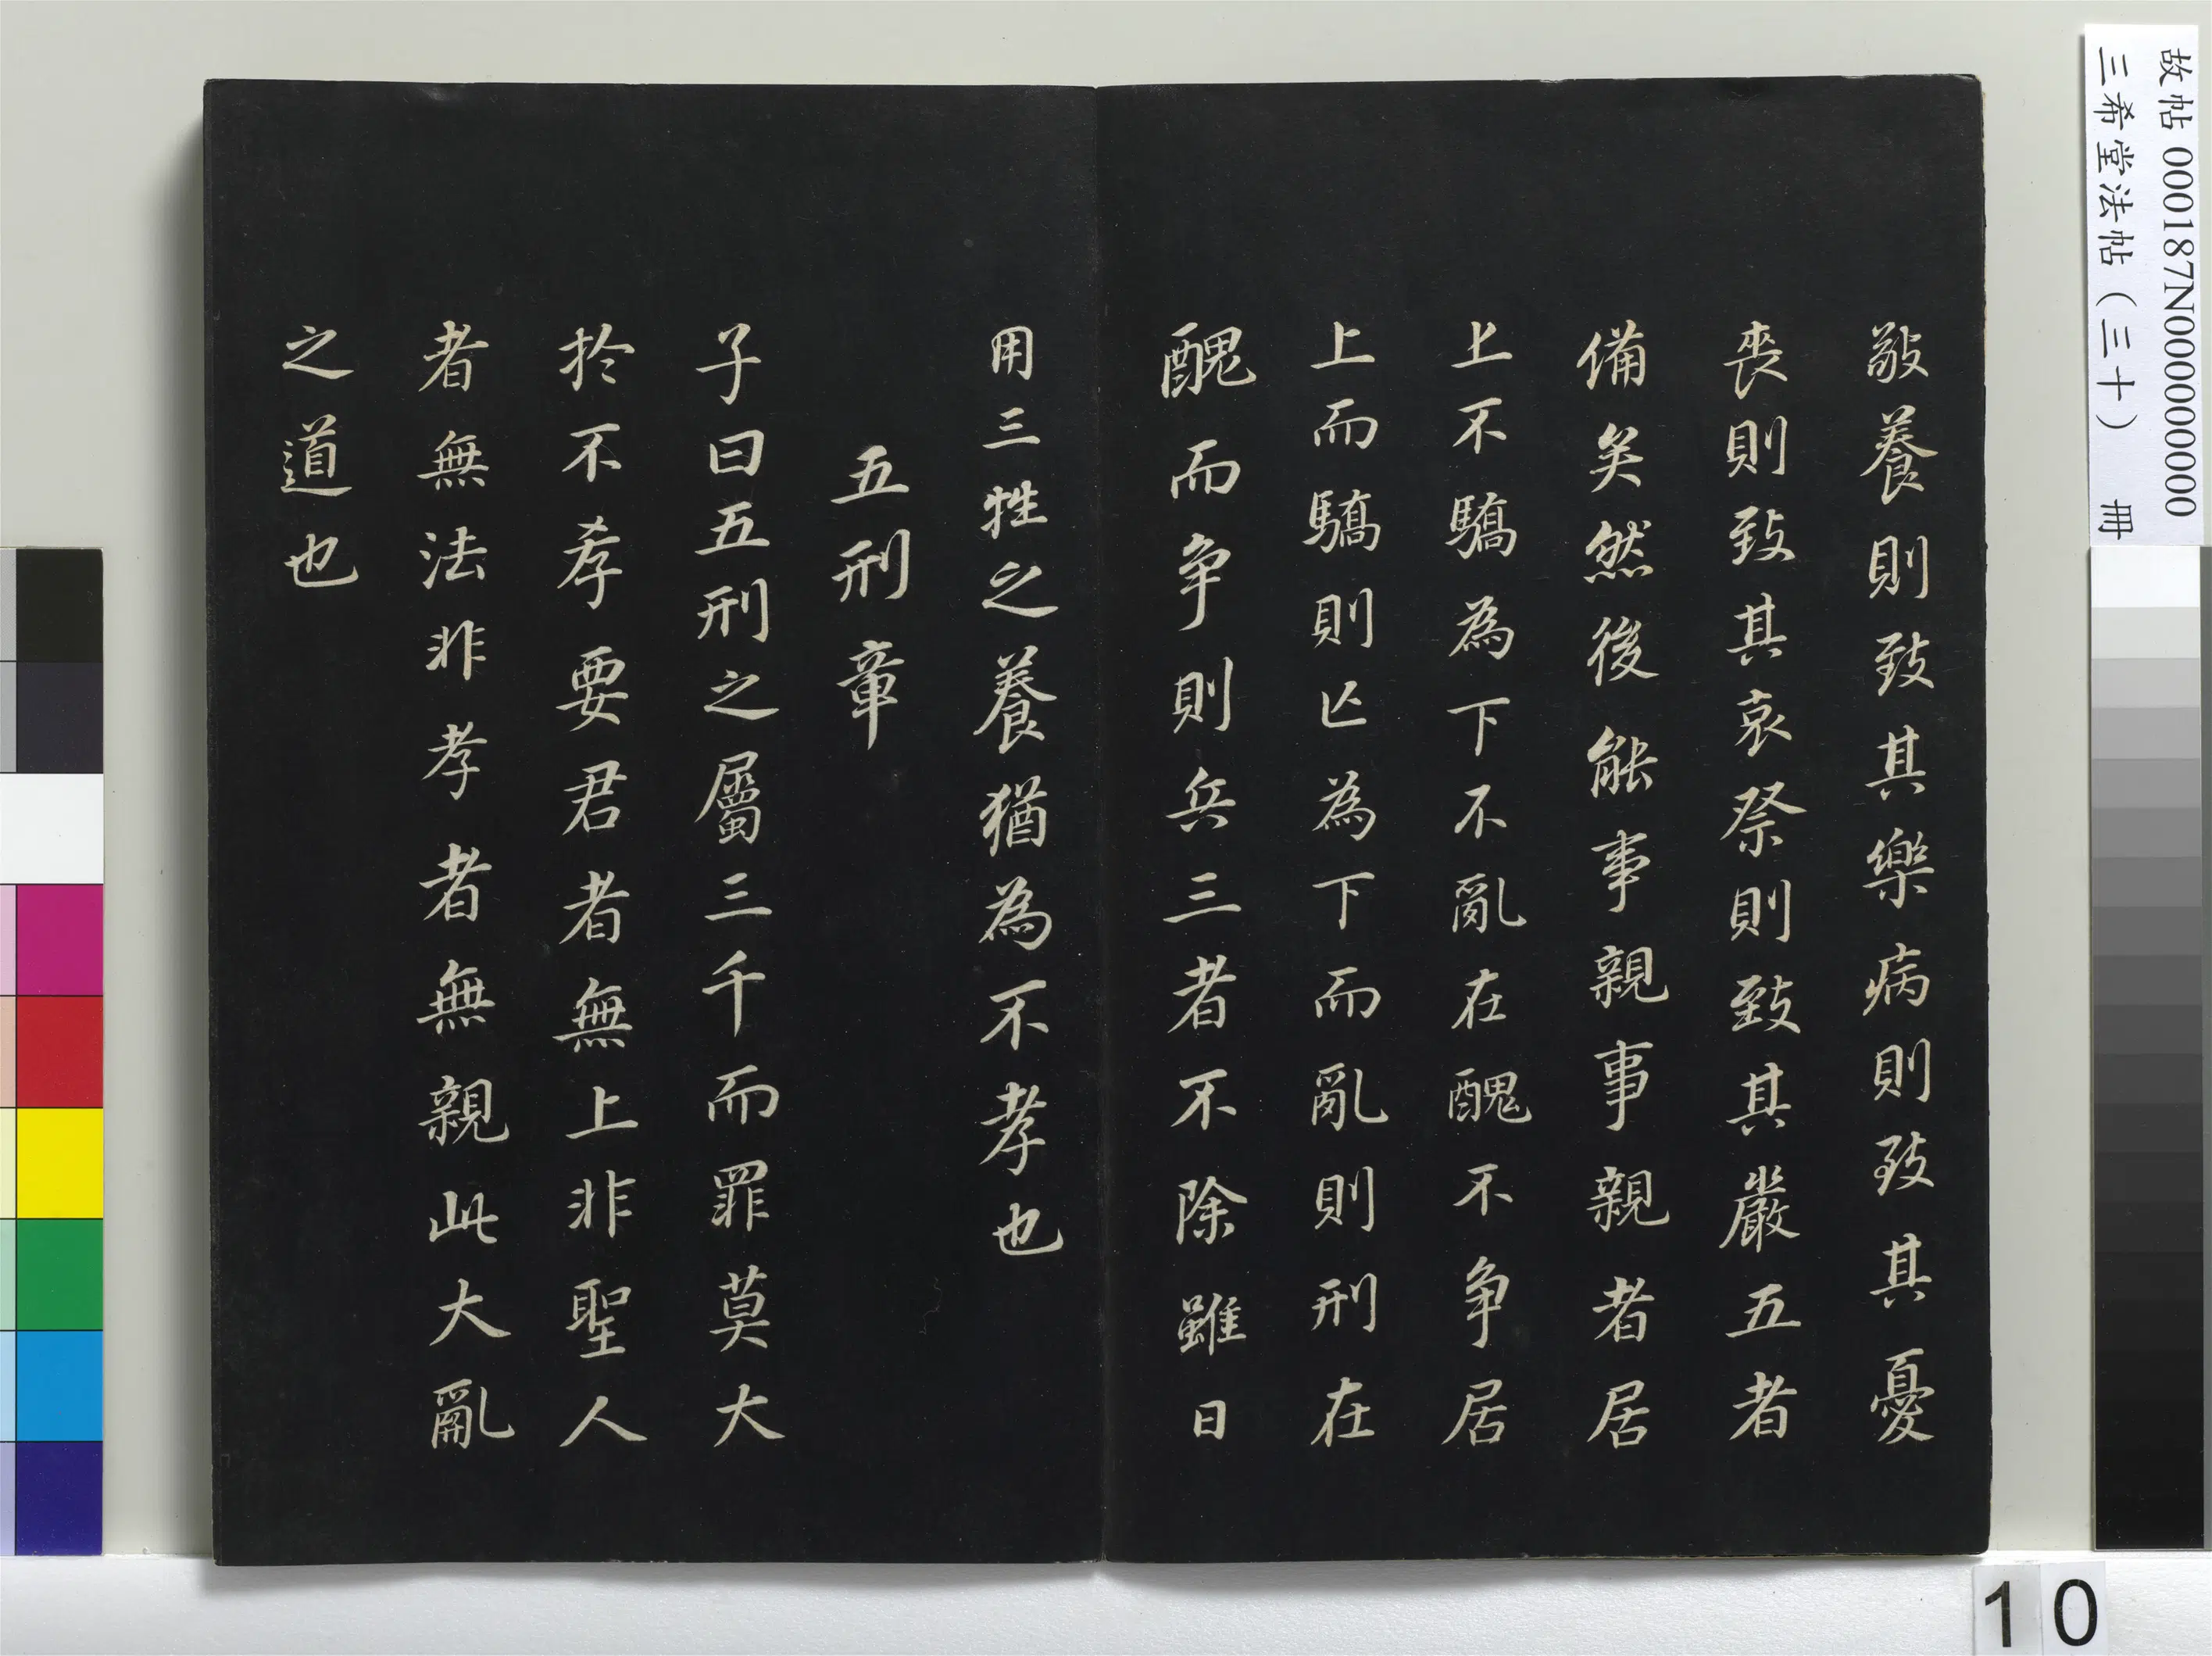 故帖 000187N000000000
三希堂法帖（三十） 冊
敬養則致其樂病則致其憂
喪則致其哀祭則致其嚴五者
備矣然後能事親事親者居
上不驕為下不亂在醜不争居
上而驕則亡為下而亂則刑在
醜而争則兵三者不除雖日
用三牲之養猶為不孝也
五刑章
子曰五刑之屬三千而罪莫大
於不孝要君者無上非聖人
者無法非孝者無親此大亂
之道也
10